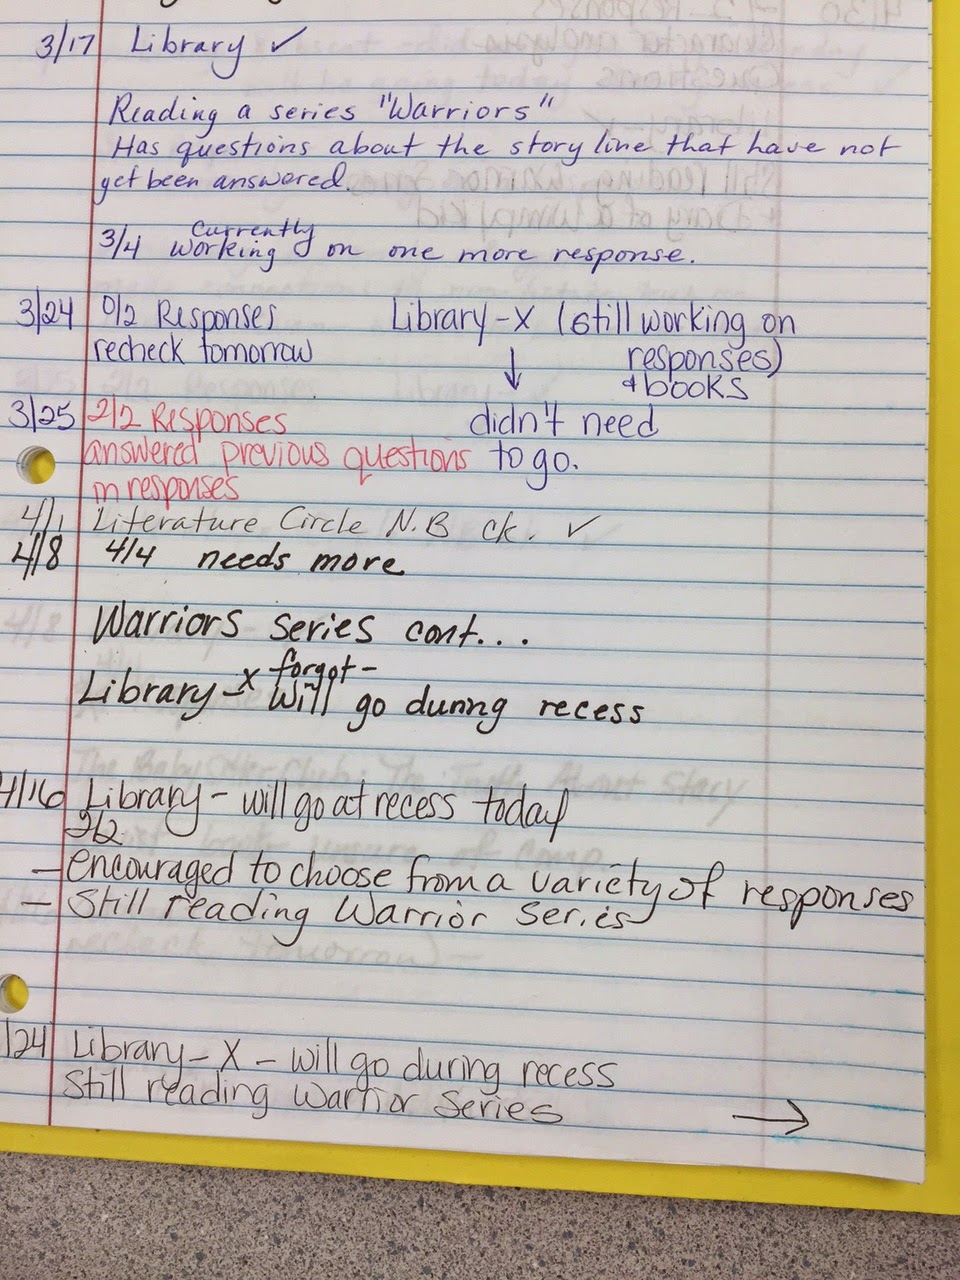 3/17 Library ✓
Reading a series "Warriors"
Has questions about the story line that have not
yet been answered.
3/4 Currently working on one more response.
3/24 0/2 Responses Library - X (still working on
recheck tomorrow ↓ responses)
& books
3/25 2/2 Responses didn't need
answered previous questions to go.
in responses
4/1 Literature Circle N.B ck. ✓
4/8 4/4 needs more
Warriors series cont...
Library - X forgot -
will go during recess
4/16 Library - will go at recess today
2/2
- encouraged to choose from a variety of responses
- Still reading Warrior Series
/24 Library - X - will go during recess
Still reading Warrior Series →